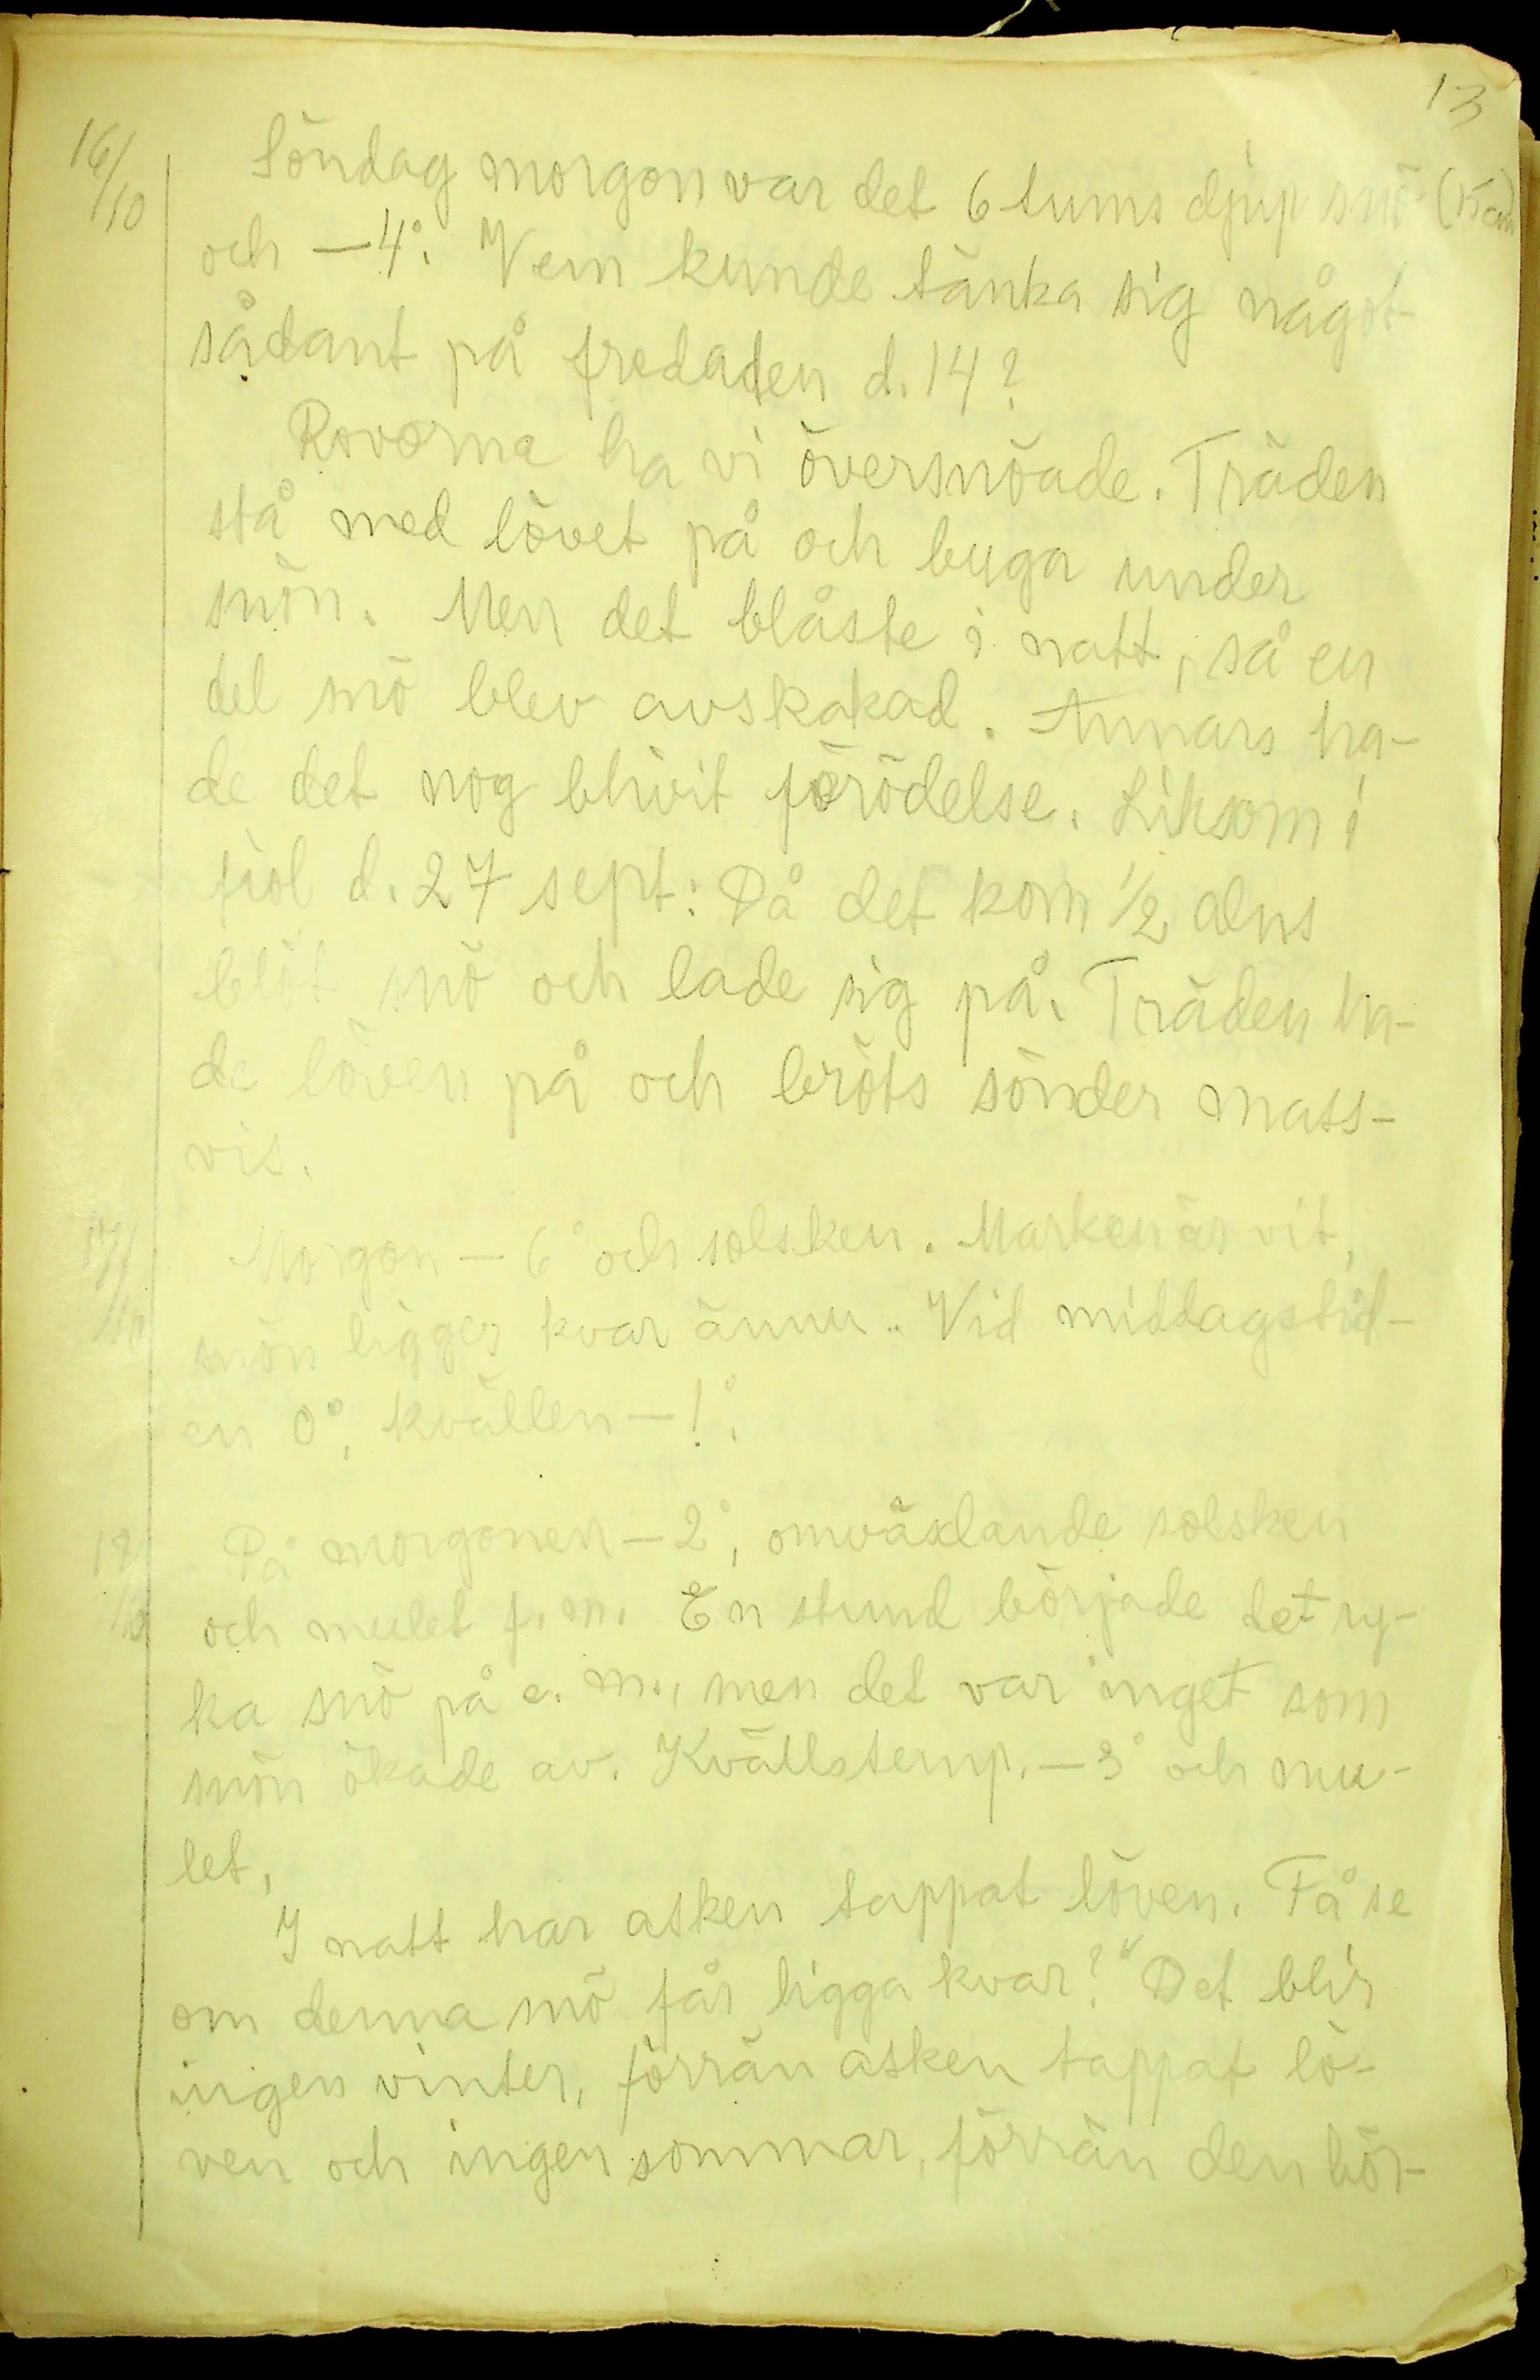 13
16/10
Söndag morgon var det 6 tums djup snö (15 cm)
och —4°. Vem kunde tänka sig något
sådant på fredaden d. 14?
Rovorna ha vi översnöade. Träden
stå med lövet på och buga under
snön. Men det blåste i natt, så en
del snö blev avskakad. Annars ha-
de det nog blivit förödelse. Liksom i
fjol d. 27 sept: Då det kom 1/2 alns
blöt snö och lade sig på. Träden ha-
de löven på och bröts sönder mass-
vis.
17/10
Morgon — 6° och solsken. Marken är vit,
snön ligger kvar ännu. Vid middagstid-
en 0°, kvällen —1°.
18/10
På morgonen —2°, omväxlande solsken
och mulet f. m. En stund började det ry-
ka snö på e. m., men det var inget som
snön ökade av. Kvällstemp. —3° och mu-
let.
I natt har asken tappat löven. Få se
om denna snö får ligga kvar? "Det blir
ingen vinter, förrän asken tappat lö-
ven och ingen sommar, förrän den bör-